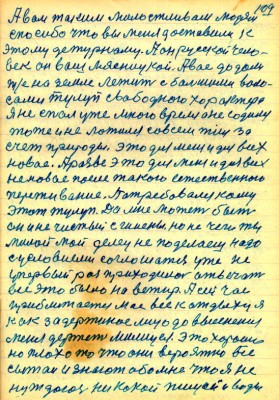 109
А вам таким милостливам людям
спасибо что вы меня доставили к
этому дежурному. А он русской чело-
век он ваш мясницкой. А вас до дому
на земле летит с большими воло-
сами тулуп свободного характера
Я не спал уже много время не садим
тоже и не ложился совсем тем за
счет природы. Это для меня и для всех
новое. А разве это для меня и для всех
не новое после такого естественного
переживание. Потребовалси кому
этот тулуп. Да мне может быть
он и не чистый с гнены, но не чего ты
милой мой делец не поделаеш надо
с условиями соглошатца уже не
у первый раз приходится отвечать
все это было на ветир. А сей час
приближаетца мае все к отдыху я
как задержиное лицо до выеснения
меня держет милицея. Это хорошо
но плохо то что они вероятно все
сытаи и знают обо мне что я не
нуждаюсь ни какой пищей и воды